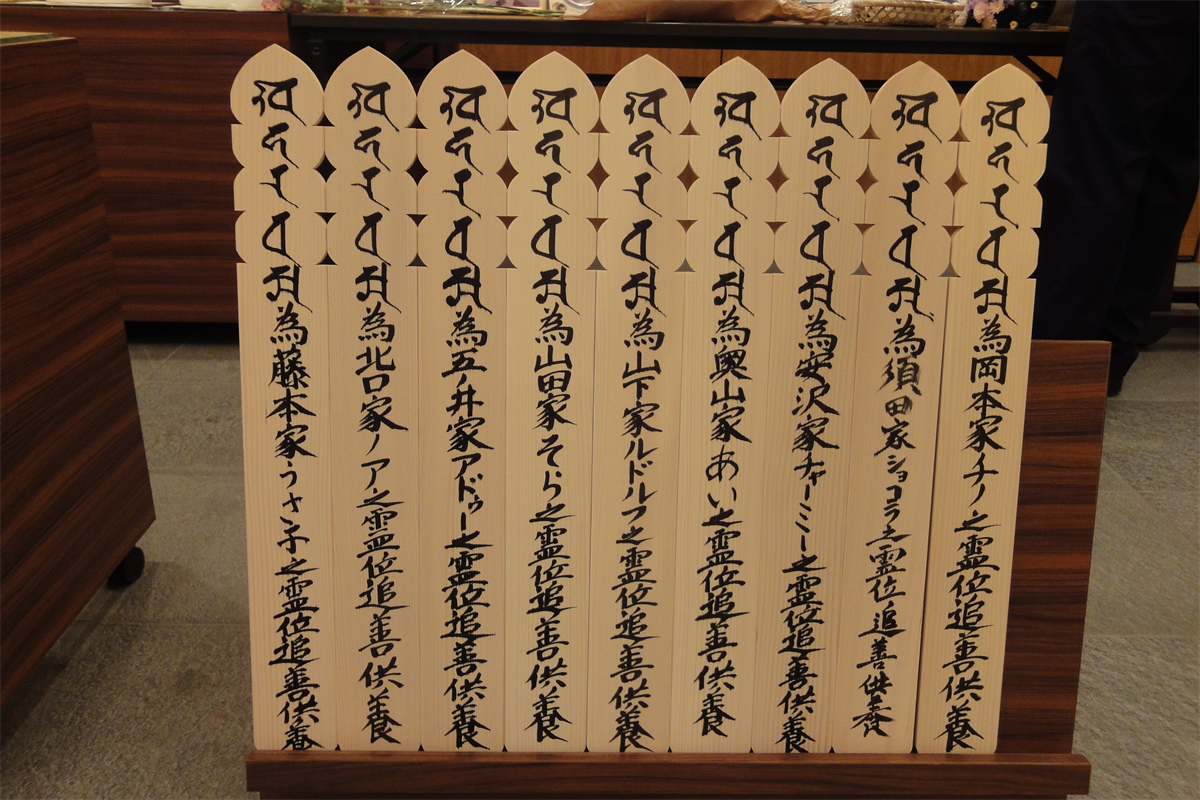 𑖎𑖯𑖽 為岡本家チノ之霊位追善供養
為須田家ショコラ之霊位追善供養
為安沢家チャーミー之霊位追善供養
為奥山家あい之霊位追善供養
為山下家ルドルフ之霊位追善供養
為山田家そら之霊位追善供養
為五ノ井家アドゥー之霊位追善供養
為北口家ノア之霊位追善供養
為藤本家うさ子之霊位追善供養